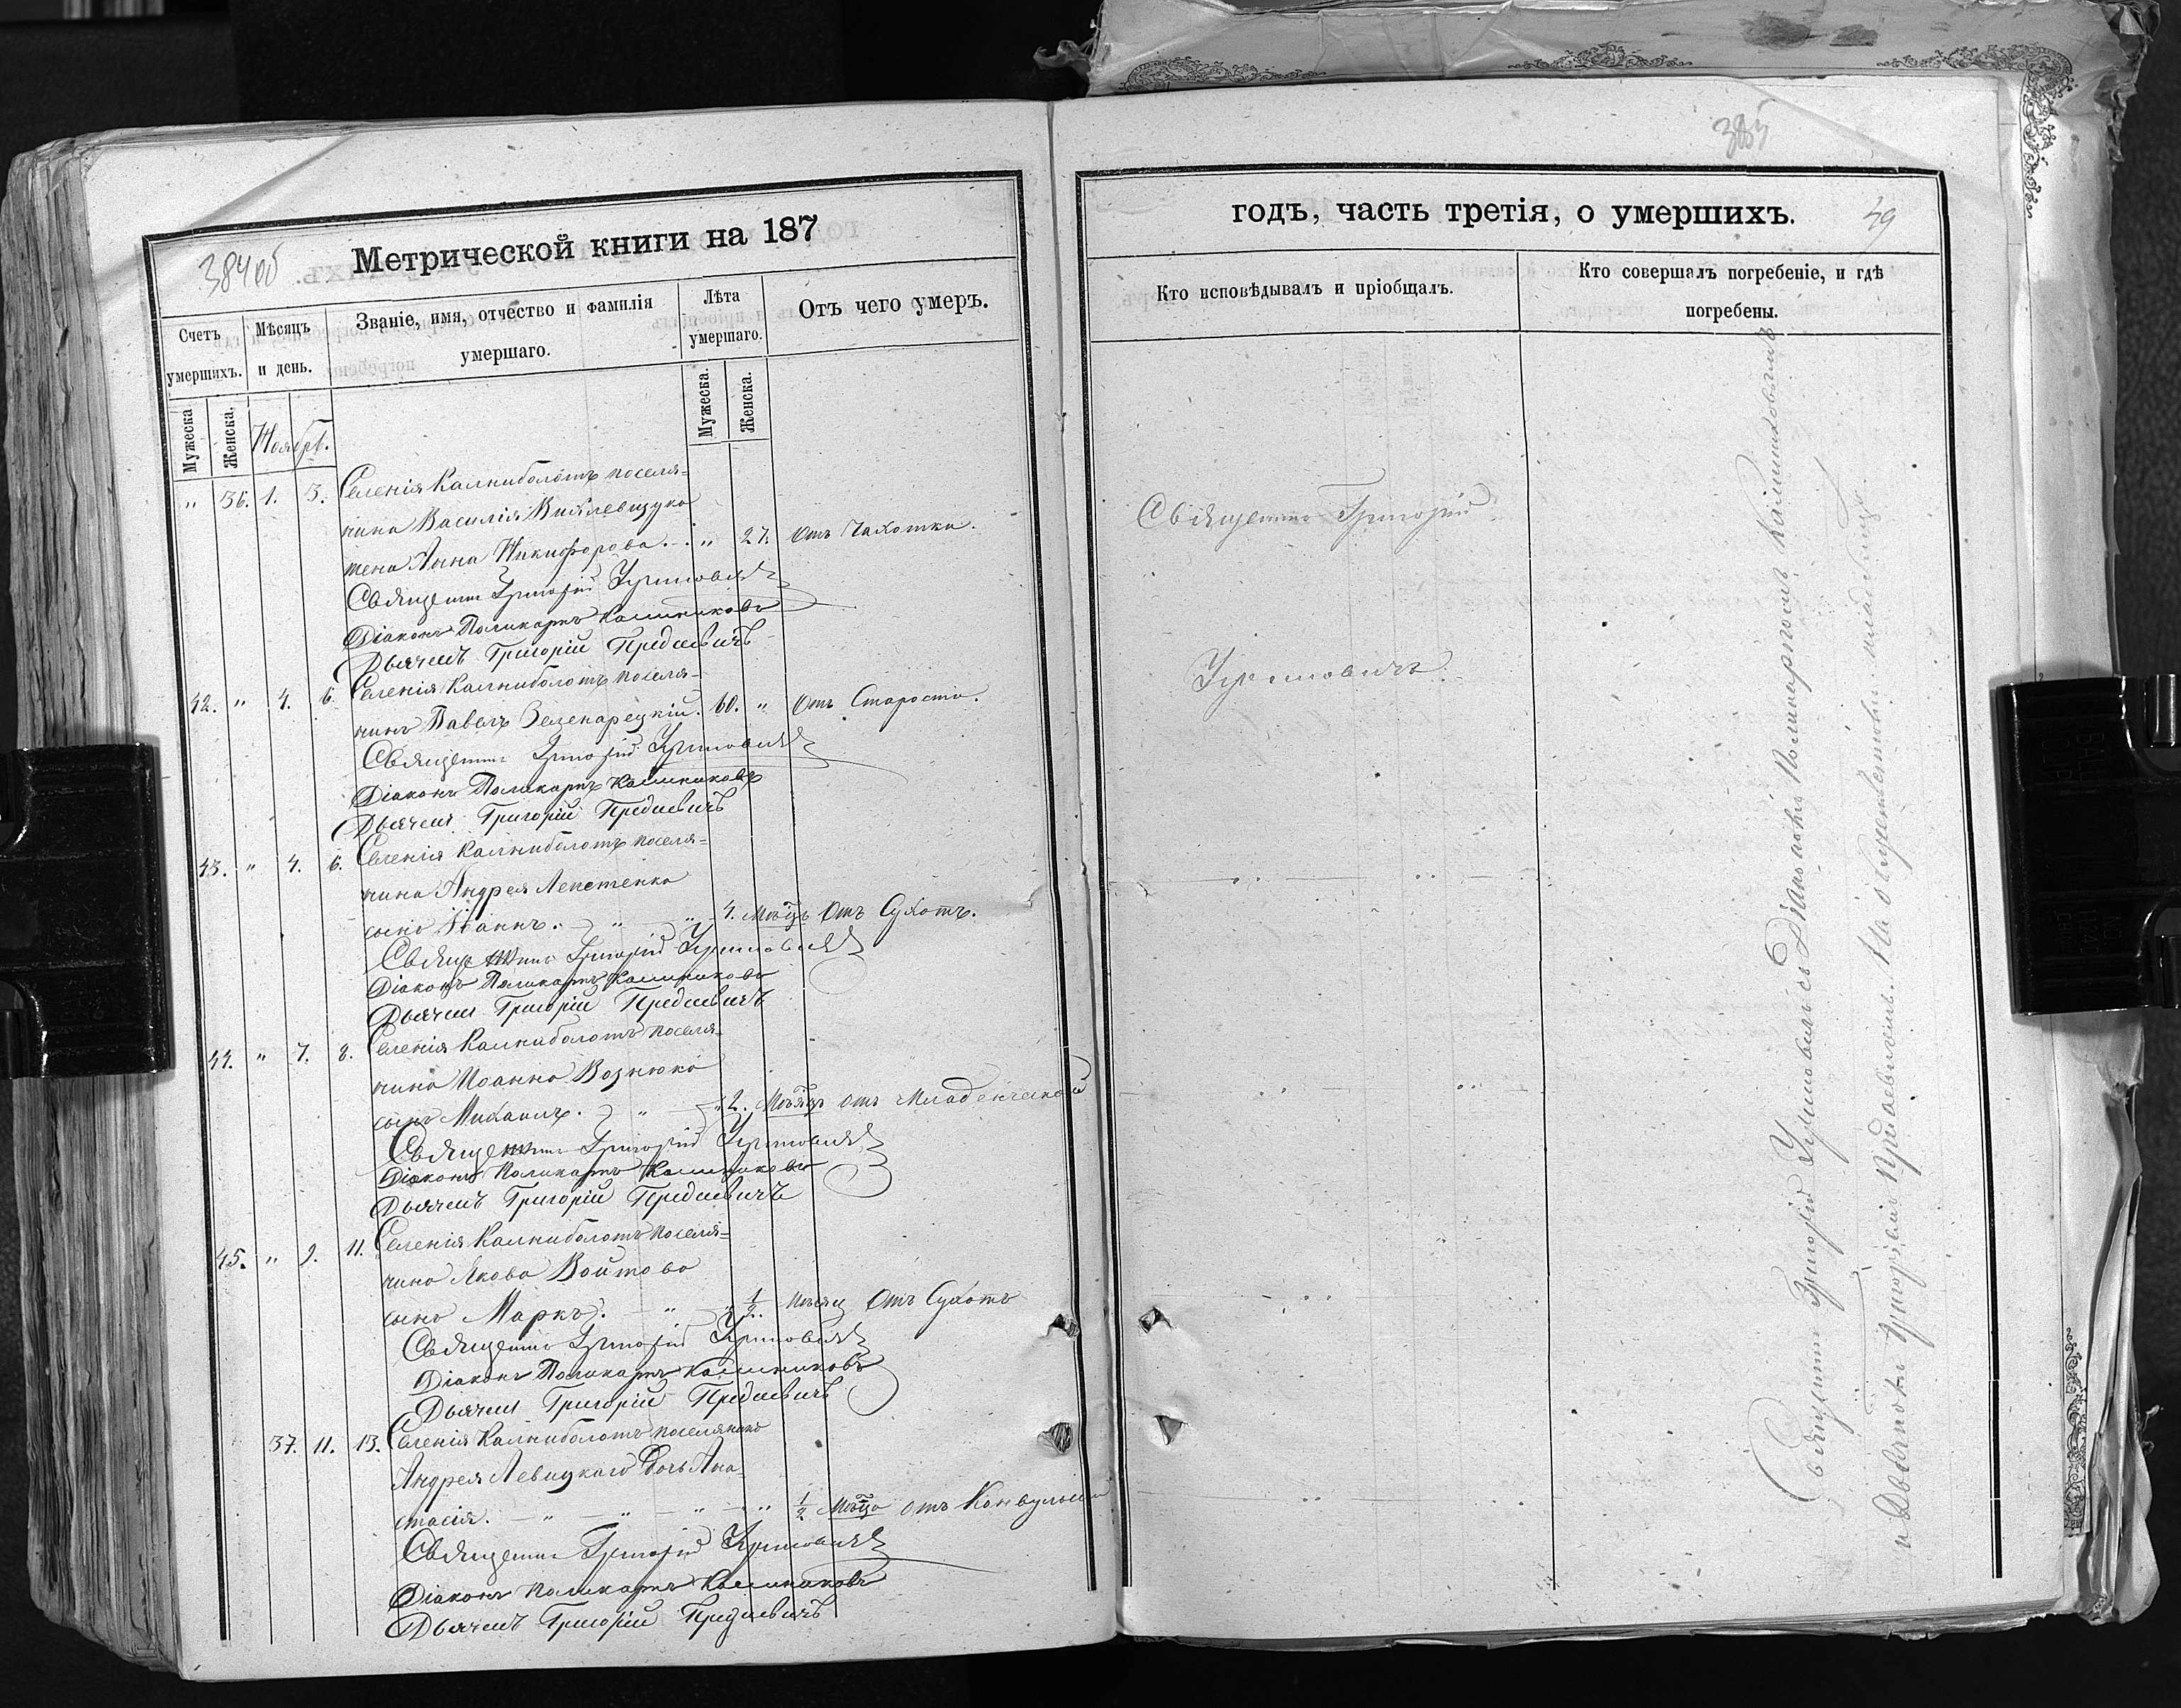 384 об
Метрической книги на 187
Счетъ умершихъ.
Мѣсяцъ и день.
Званіе, имя, отчество и фамилія умершаго.
Лѣта умершаго.
Отъ чего умеръ.
Мужеска
Женска.
Ноябрь.
Мужеска.
Женска.
" 36. 1. 3. Селенія Калниболотъ поселя=
нина Василія
жена Анна Никифорова. " 27. Отъ Чахотки.
Священникъ Григорій
Діаконъ Поликарпъ Калинниковъ
Дьячекъ Григорій
42. " 4. 6. Селенія Калниболотъ поселя=
нинъ Павелъ 60. " Отъ Старости.
Священникъ Григорій
Діаконъ Поликарпъ Калинниковъ
Дьячекъ Григорій
43. " 4. 6. Селенія Калниболотъ поселя=
нина Андрея
сынъ Іоаннъ. " " 4. Мѣсц Отъ Сухотъ.
Священникъ Григорій
Діаконъ Поликарпъ Калинниковъ
Дьячекъ Григорій
44. " 7. 8. Селенія Калниболотъ поселя=
нина Иоанна Вознюка
сынъ Михаилъ. " " 2. Мѣсяц отъ Младенческой
Священникъ Григорій
Діаконъ Поликарпъ Калинниковъ
Дьячекъ Григорій
45. " 9. 11. Селенія Калниболотъ поселя=
нина Якова Войтова
сынъ Маркъ. " " 1/2. Мѣсяц Отъ Сухотъ
Священникъ Григорій
Діаконъ Поликарпъ Калинниковъ
Дьячекъ Григорій
37. 11. 13. Селенія Калниболотъ поселянина
Андрея Левицкаго дочь Ана=
стасія. " " " " 1/2 Мѣсца отъ Конвульсіи
Священникъ Григорій
Діаконъ Поликарпъ Калинниковъ
Дьячекъ Григорій
385
годъ, часть третія, о умершихъ.
49
Кто исповѣдывалъ и пріобщалъ.
Кто совершалъ погребеніе, и гдѣ погребены.
Священникъ Григорій
Священникъ Григорій съ Діакономъ Поликарпомъ Калинниковымъ
и Дьячкомъ Григоріемъ На общественномъ кладбищѣ.